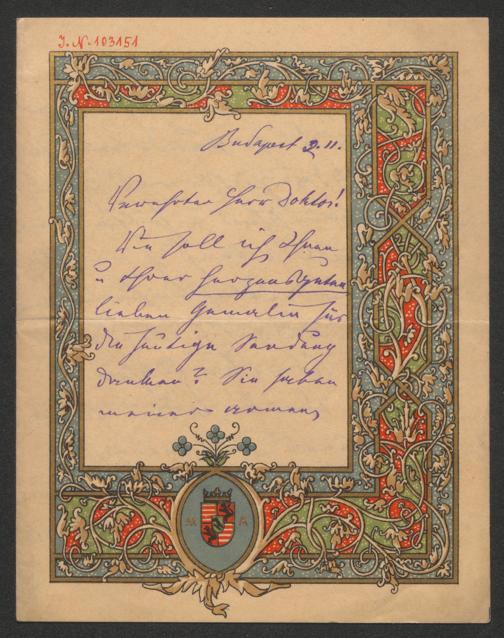 J. N. 103151
Budapest 9. 11.
Verehrter Herr Doktor!
Wie soll ich Ihnen
u Ihrer herzensguten
lieben Gemalin für
die heutige Sendung
danken? Sie haben
meiner armen
M A